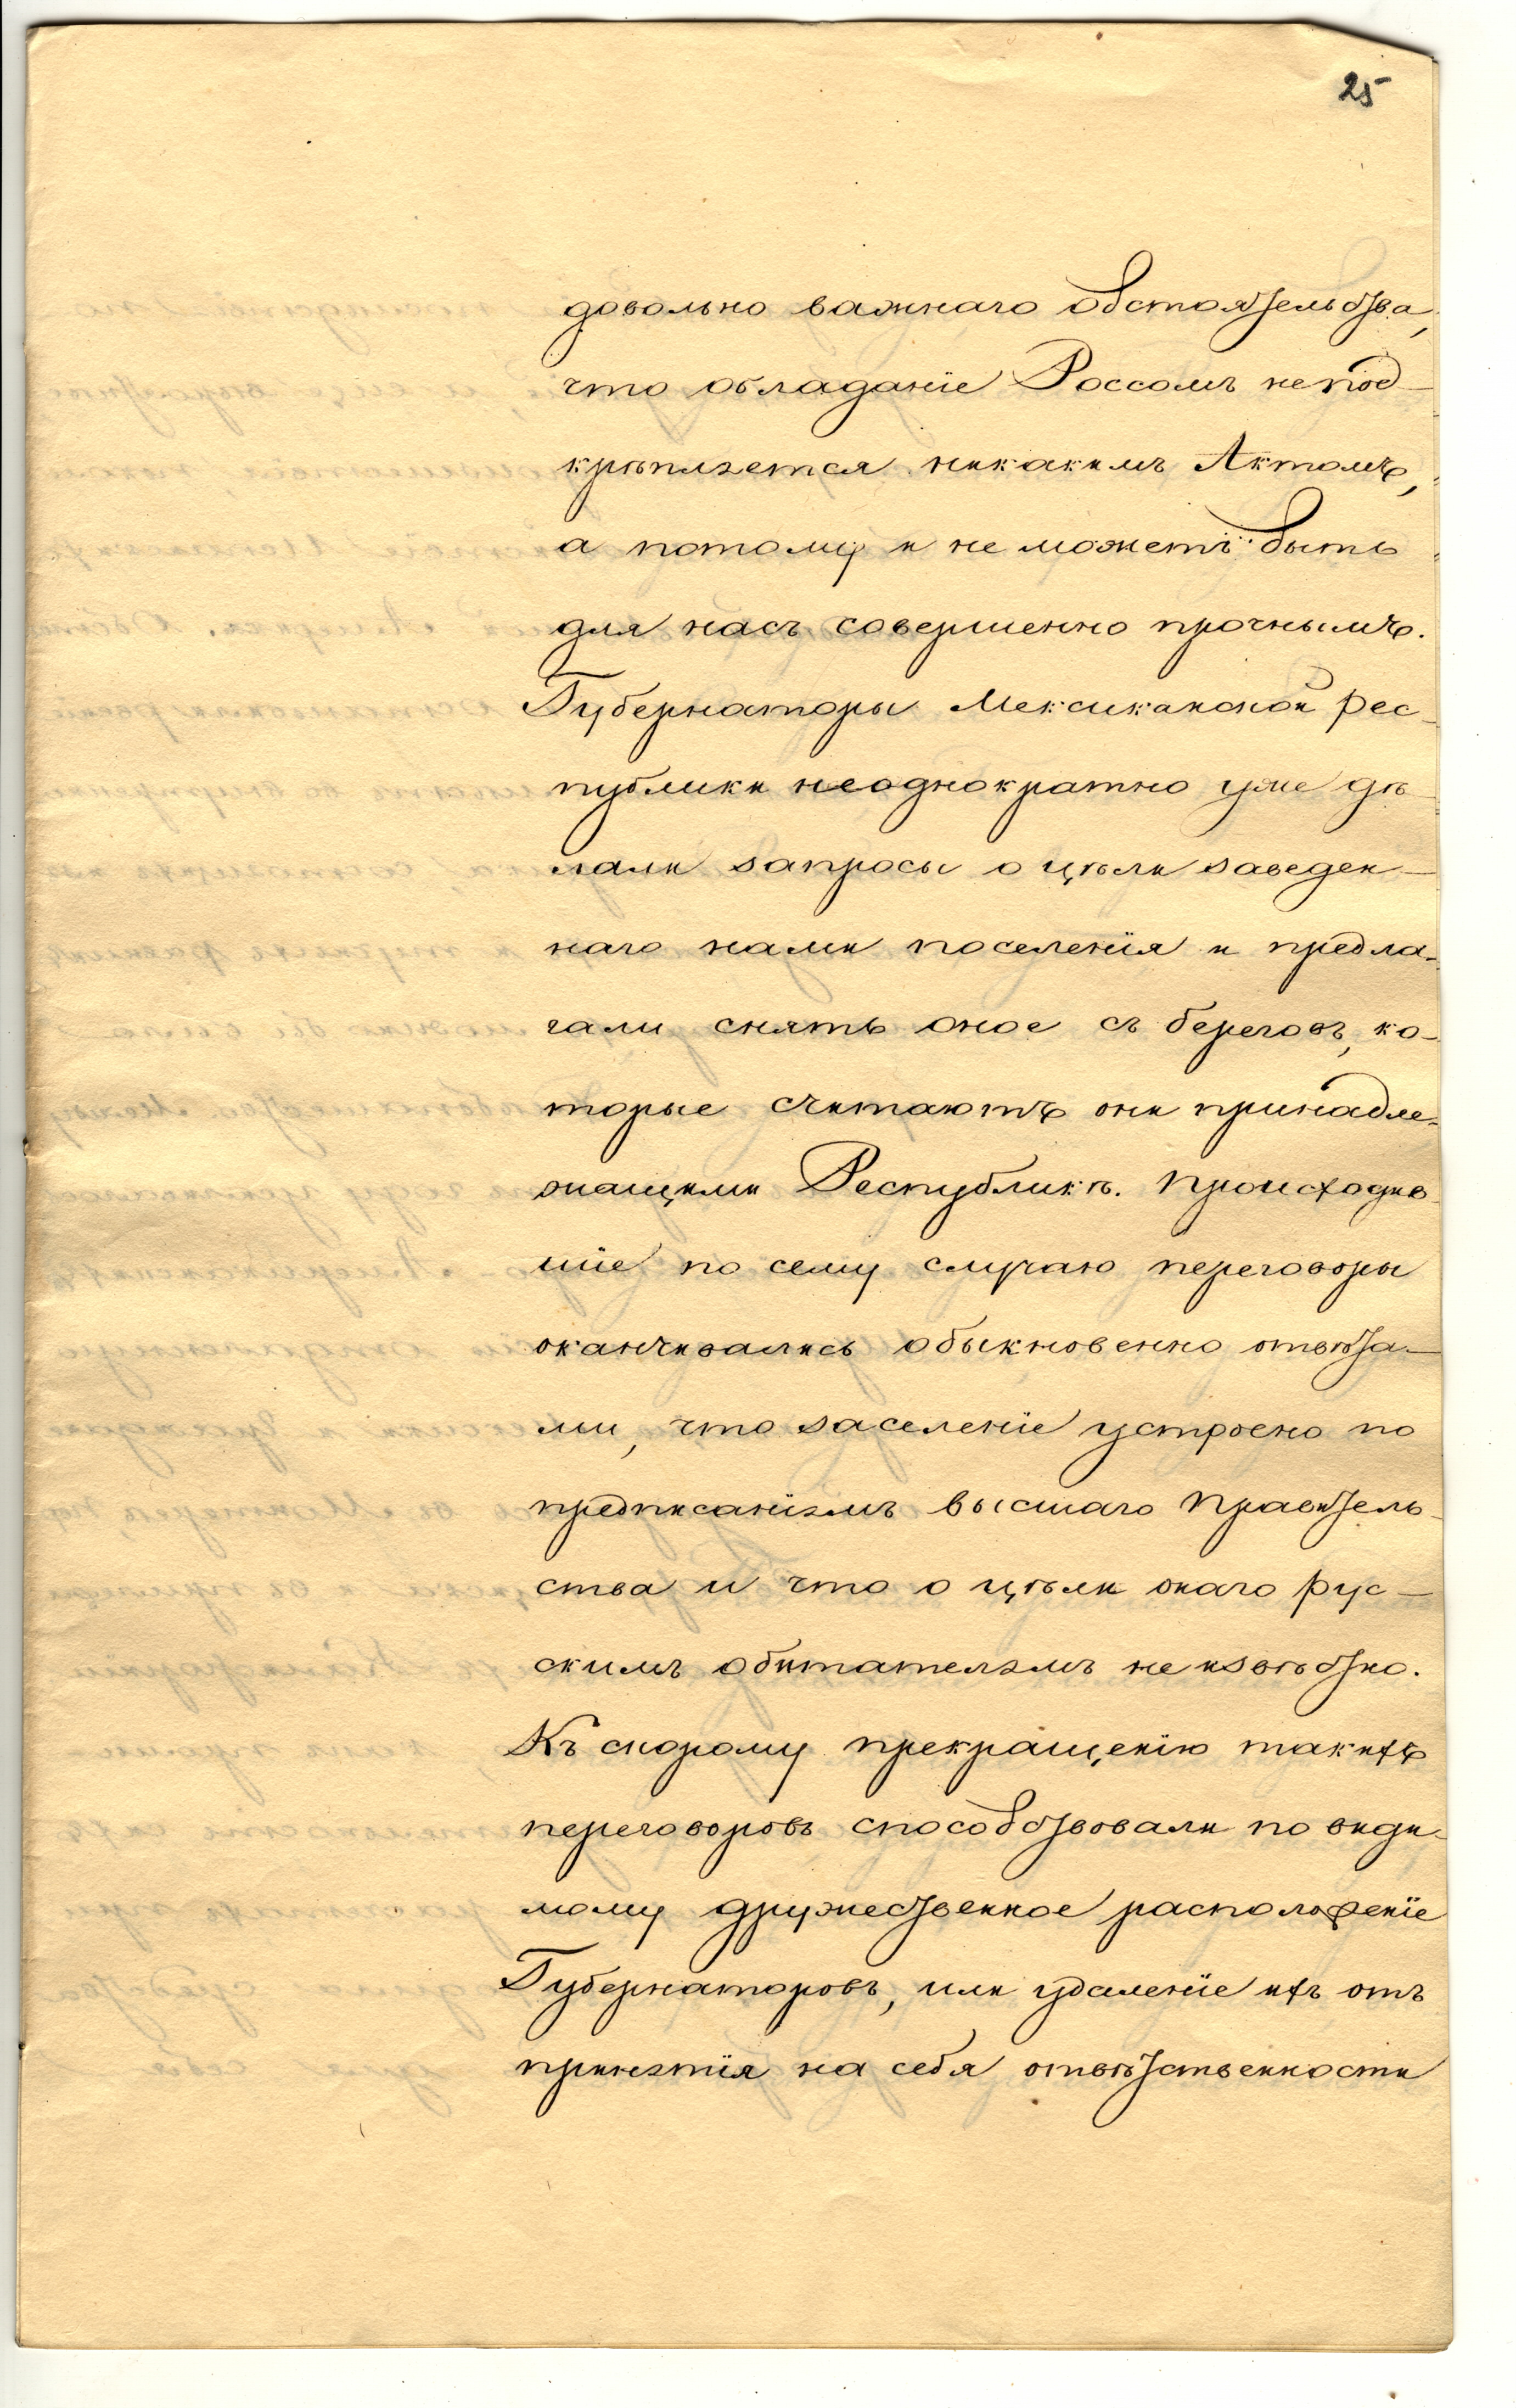 25
довольно важнаго обстоятельства,
что обладанiе Россомъ не под-
крѣпляется никакимъ Актомъ,
а потому и не можетъ быть
для насъ совершенно прочнымъ.
Губернаторы Мексиканской Рес-
публики неоднократно уже дѣ-
лали запросы о цѣли заведен-
наго нами поселенiя и предла-
гали снять оное съ береговъ, ко-
торые считаютъ они принадле-
жащими Республикѣ. Происходив-
шiе по сему случаю переговоры
оканчивались обыкновенно отвѣта-
ми, что заселенiе устроено по
предписанiямъ высшаго Правитель-
ства и что о цѣли онаго рус-
скимъ обитателямъ не извѣстно.
Къ скорому прекращенiю такихъ
переговоровъ способствовали по види-
мому дружественное расположенiе
Губернаторовъ, или удаленiе ихъ отъ
принятiя на себя отвѣтственности